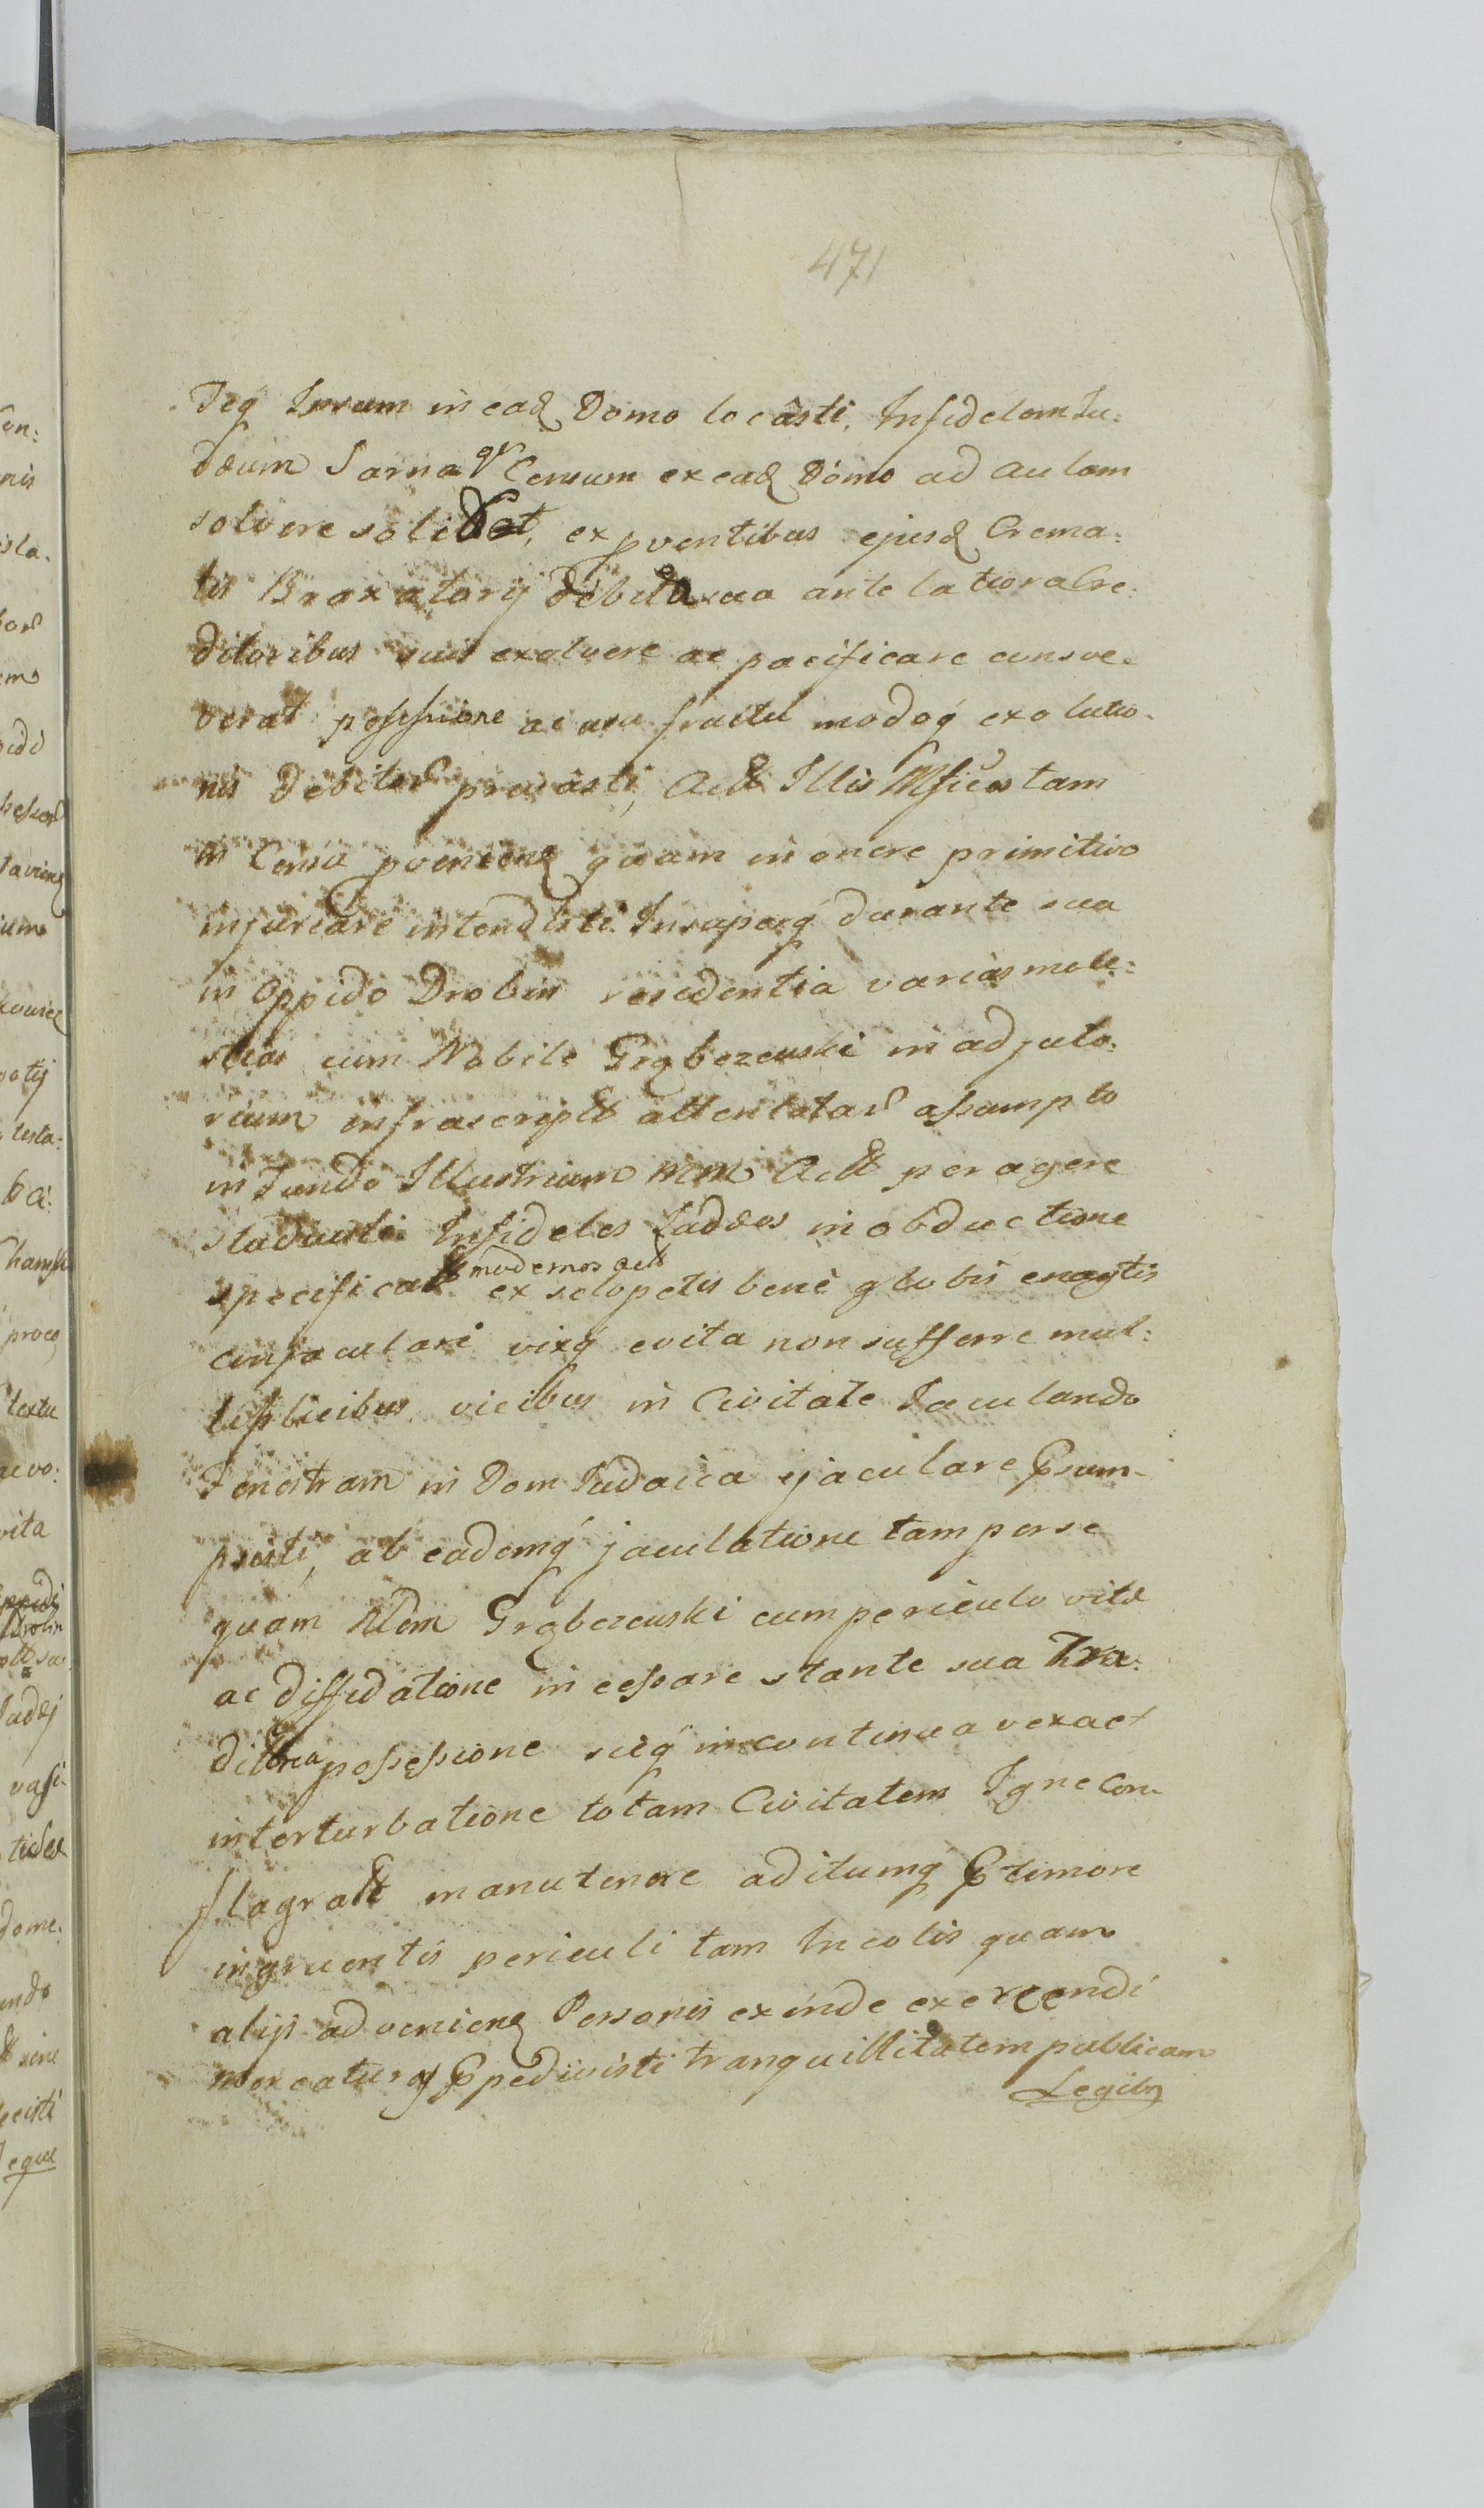 471
Teq Ipsum in ead Domo locâsti, Infidelem Iu:
dæum Sarna qr Censum ex ead Domo ad aulam
solvere solebat, ex pventibus ejusd Crema:
tis Braxatorij debita sua ante lationa Cre:
ditoribus suis exolvere ac pacificare consve:
verat possessione ac usu fructu modoq exolutio:
nis debitor privâsti, Actt Illis Mficos tam
in Censu pveniend quam in onere primitivo
injuriare intendisti. Insuperq durante sua
in Oppido Drobin residentia varias mole:
stias cum Nobile Grąbczewski in adjuto:
rium infrascriptt attentator assumpto
in Fundo Illustrium MM Actt peragere
studuisti. Infideles Judæos in obductione
specificatt modernos actt ex sclopetis bene globis
conjaculari vixq e vita non sufferre mul:
tiplicibus vicibus in Civitate Jaculando
Fenestram in Dom Judaica ejaculare Psum:
psisti, ab eademq jaculatione tam per se
quam Nlem Grąbczewski cum periculo vitæ
ac diffidatione incessare stante sua Tra:
ditoria possessione sicq in continua vexaet
interturbatione totam Civitatem Igne Con:
flagratt manutenere aditumq P timore
ingruentis periculi tam Incolis quam
alijs adveniend Personis exinde exercendi
mercaturas Ppedivisti tranquillitatem publicam
Legibq